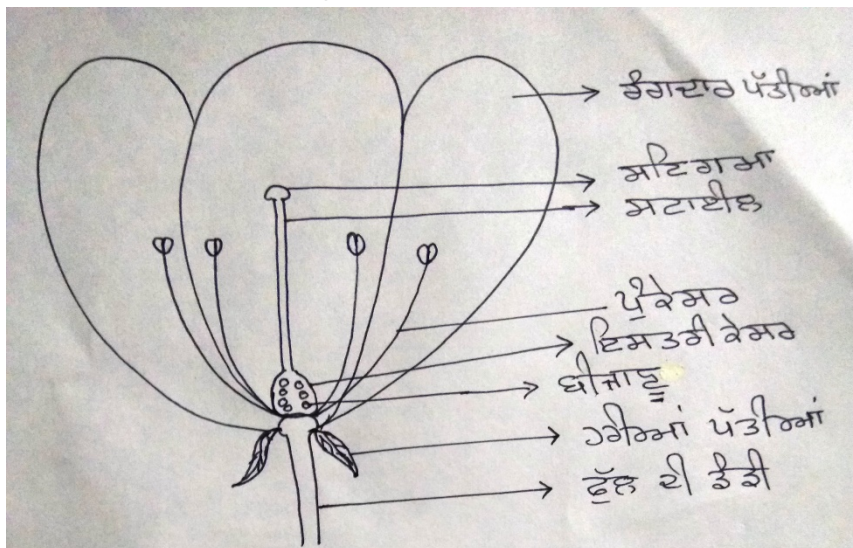 ਰੰਗਦਾਰ ਪੱਤੀਆਂ
ਸਟਿਗਮਾ
ਸਟਾਈਲ
ਪੁੰਕੇਸਰ
ਇਸਤਰੀ ਕੇਸਰ
ਬੀਜਾਣੂ
ਹਰੀਆਂ ਪੱਤੀਆਂ
ਫੁੱਲ ਦੀ ਡੰਡੀ